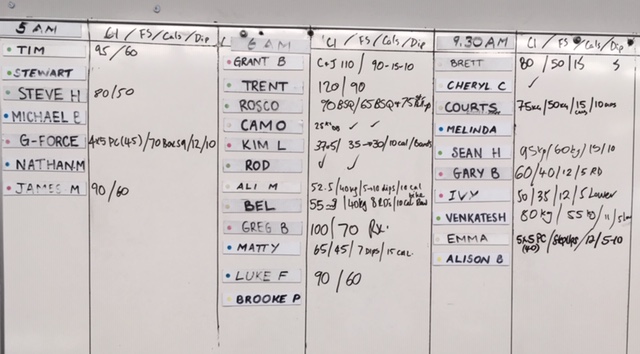 5 AM CJ / FS / Cals / Dip
TIM 95 / 60
STEWART
STEVE H 80 / 50
MICHAEL B
G-FORCE 4x5 PC (45) / 70 Box SQ / 12 / 10
NATHAN M
JAMES M 90 / 60
6 AM CJ / FS / Cals / Dip
GRANT B C+J 110 / 90-15-10
TRENT 120 / 90
ROSCO 90 BSQ / 65 BSQ
CAMO ✓ ✓
KIM L 37.5 / 35 → 30 / 10 Cal / Bands
ROD ✓ ✓
ALI M 52.5 / 40kg / 5-10 dips / 10 Cal bike
BEL / 40kg 8 RDs / 10 Cal
GREG B 100 / 70 Rx.
MATTY 65 / 45 / 7 Dips / 15 Cal.
LUKE F 90 / 60
BROOKE P
9.30 AM CJ / FS / Cals / Dip
BRETT 80 / 50 / 15 5
CHERYL C ✓
COURTS 75kg / 50kg / 15 cals / 10
MELINDA
SEAN H 95kg / 60kg / 15 / 10
GARY B 60 / 40 / 12 / 5 RD
IVY 50 / 35 / 12 / 5 Lower
VENKATESH 80kg / 55kg / 11 / 5
EMMA 5x5 PC (40) / / 12 / 5-10
ALISON B